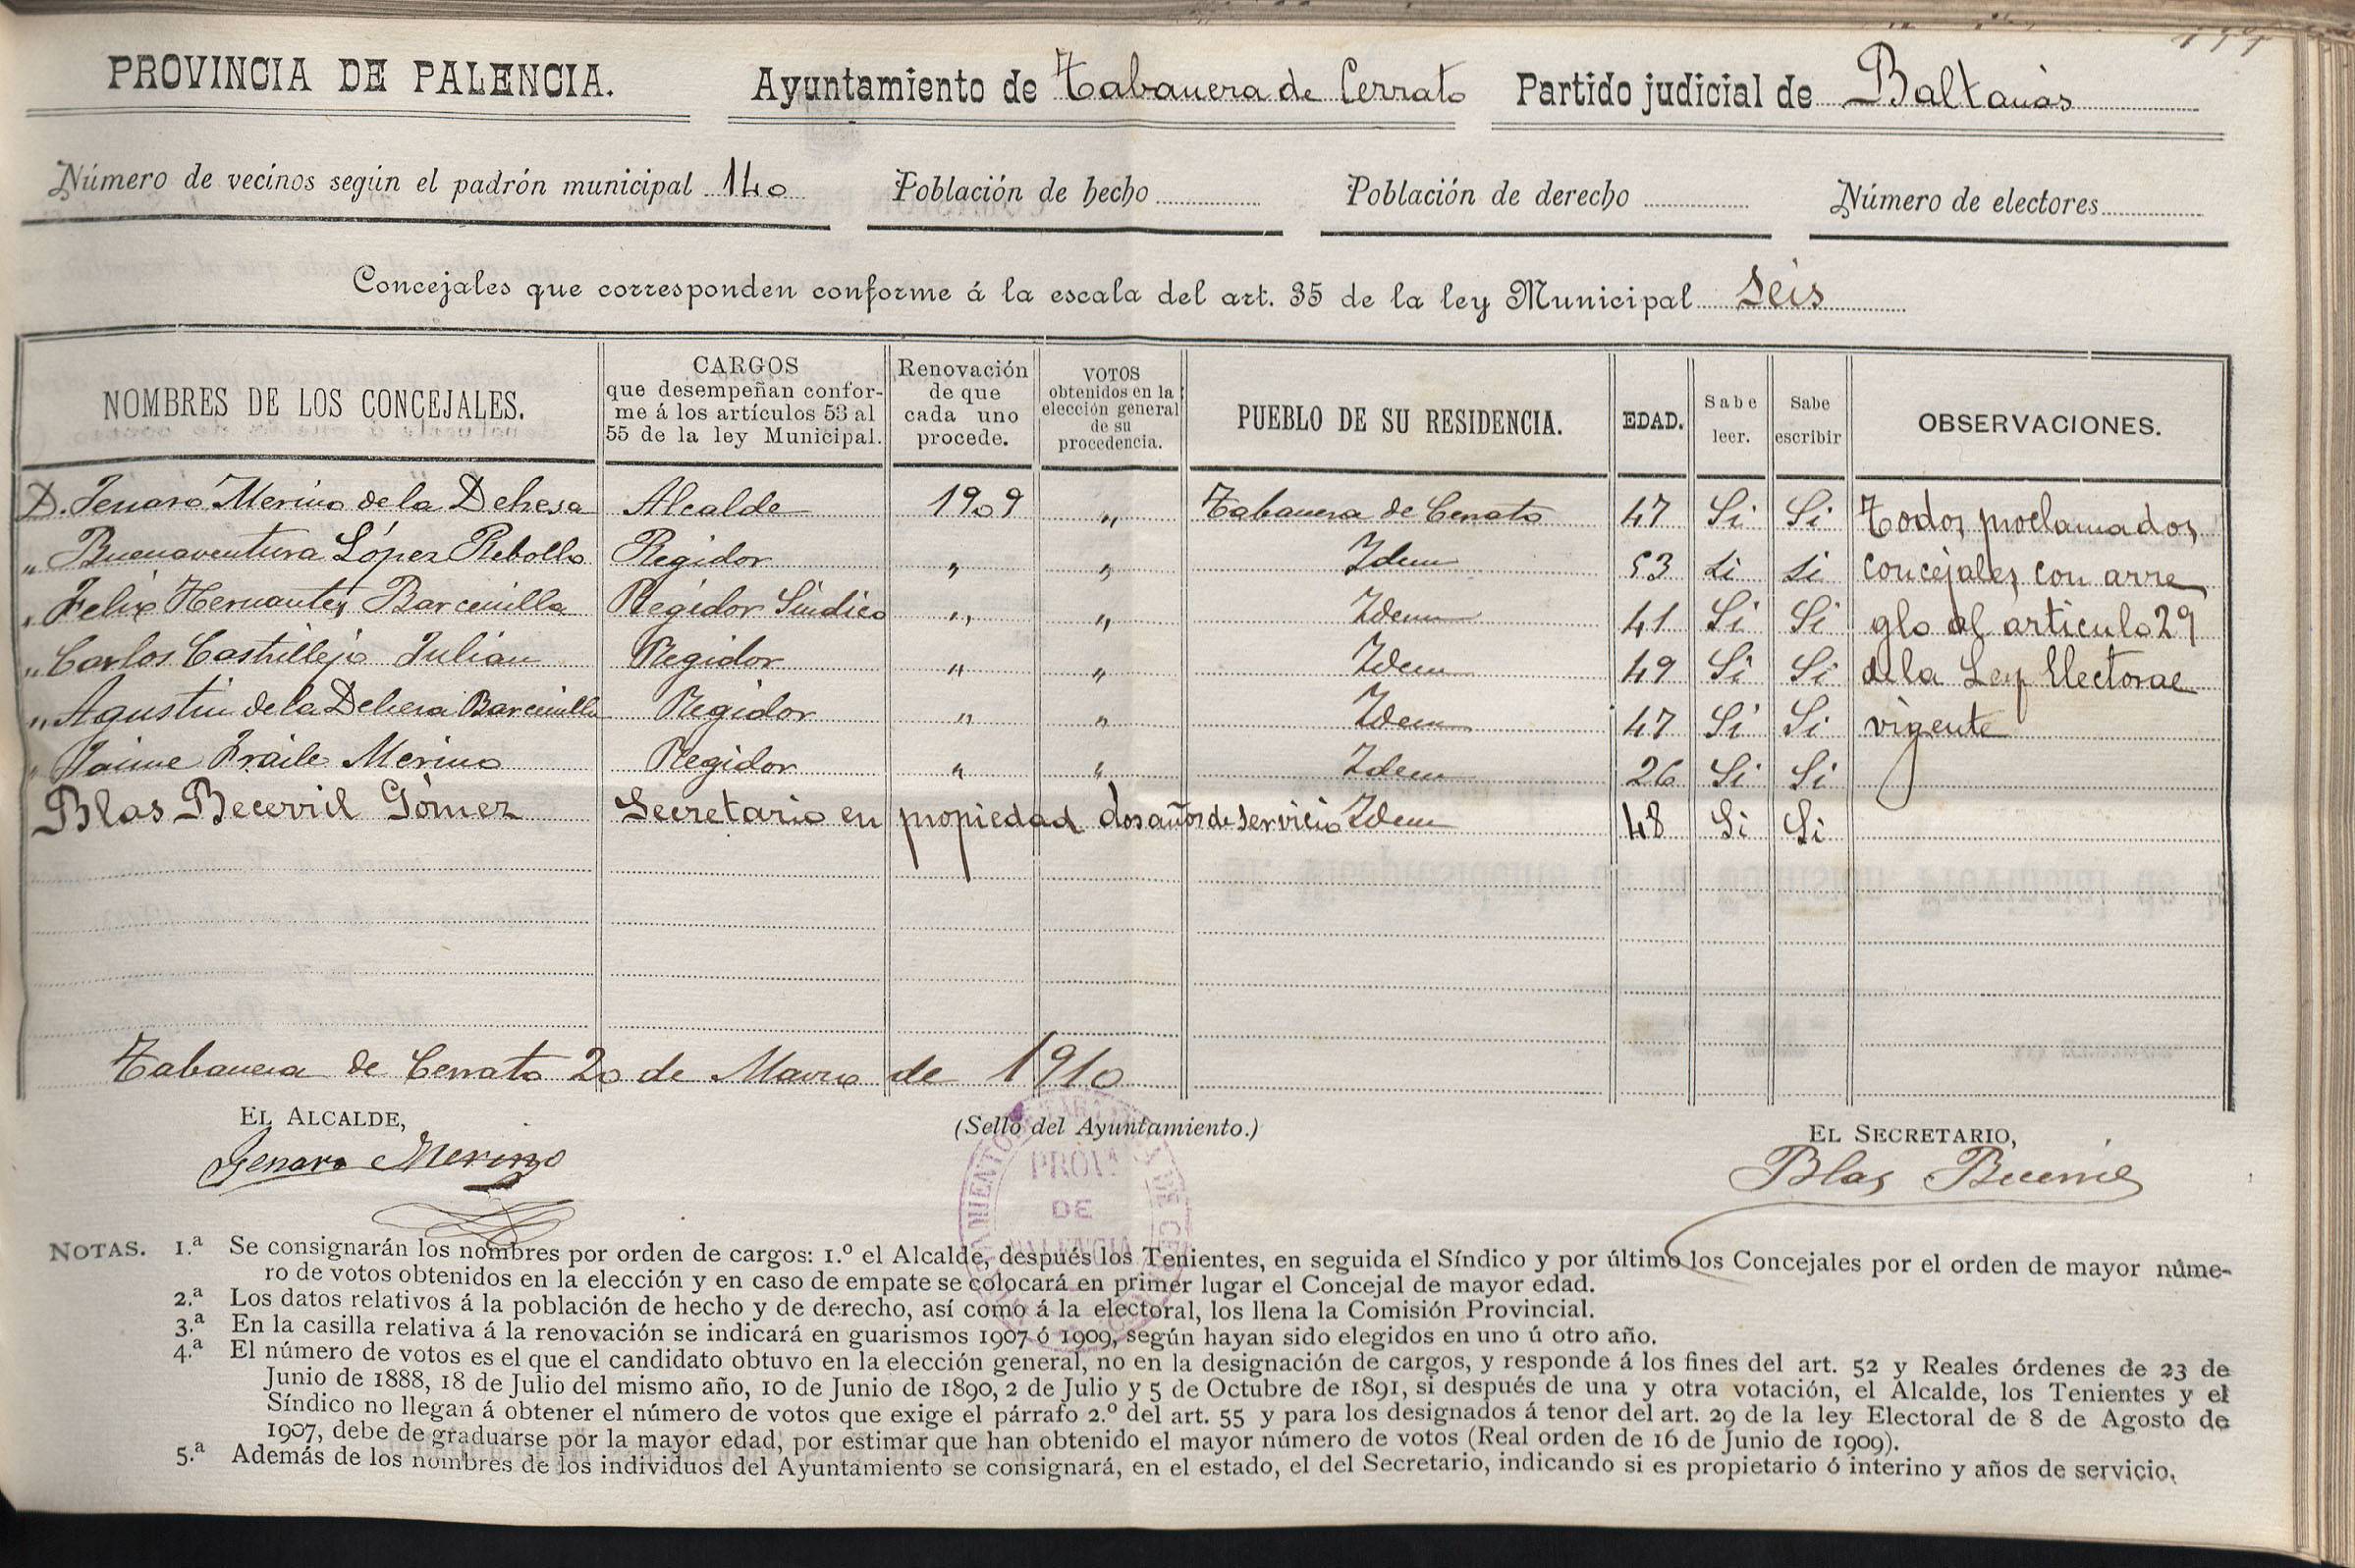 PROVINCIA DE PALENCIA. Ayuntamiento de Tabanera de Cerrato Partido judicial de Baltanás
Número de vecinos según el padrón municipal 140 Población de hecho Población de derecho Número de electores
Concejales que corresponden conforme á la escala del art. 35 de la ley Municipal Seis
NOMBRES DE LOS CONCEJALES.
CARGOS
que desempeñan confor-
me á los artículos 53 al
55 de la ley Municipal.
Renovación
de que
cada uno
procede.
VOTOS
obtenidos en la
elección general
de su
procedencia.
PUEBLO DE SU RESIDENCIA.
EDAD.
Sabe
leer.
Sabe
escribir
OBSERVACIONES.
D. Jenaro Merino de la Dehesa Alcalde 1909 " Tabanera de Cerrato 47 Si Si Todos proclamados
" Buenaventura López Rebollo Regidor " " Idem 53 Si Si concejales con arre
" Felix Hernantes Barcenilla Regidor Sindico " " Idem 41 Si Si glo al articulo 29
" Carlos Castrillejo Julian Regidor " " Idem 49 Si Si de la Ley Electoral
" Agustin de la Dehesa Barcenilla Regidor " " Idem 47 Si Si vigente
" Jaime Fraile Merino Regidor " " Idem 26 Si Si
Blas Becerril Gómez Secretario en propiedad dos años de servicio Idem 48 Si Si
Tabanera de Cerrato 20 de Marzo de 1910
EL ALCALDE, (Sello del Ayuntamiento.) EL SECRETARIO,
Genaro Merino Blas Becerril
PROVA
DE
PALENCIA
NOTAS. 1.ª Se consignarán los nombres por orden de cargos: 1.º el Alcalde, después los Tenientes, en seguida el Síndico y por último los Concejales por el orden de mayor núme-
ro de votos obtenidos en la elección y en caso de empate se colocará en primer lugar el Concejal de mayor edad.
2.ª Los datos relativos á la población de hecho y de derecho, así como á la electoral, los llena la Comisión Provincial.
3.ª En la casilla relativa á la renovación se indicará en guarismos 1907 ó 1909, según hayan sido elegidos en uno ú otro año.
4.ª El número de votos es el que el candidato obtuvo en la elección general, no en la designación de cargos, y responde á los fines del art. 52 y Reales órdenes de 23 de
Junio de 1888, 18 de Julio del mismo año, 10 de Junio de 1890, 2 de Julio y 5 de Octubre de 1891, si después de una y otra votación, el Alcalde, los Tenientes y el
Síndico no llegan á obtener el número de votos que exige el párrafo 2.º del art. 55 y para los designados á tenor del art. 29 de la ley Electoral de 8 de Agosto de
1907, debe de graduarse por la mayor edad, por estimar que han obtenido el mayor número de votos (Real orden de 16 de Junio de 1909).
5.ª Además de los nombres de los individuos del Ayuntamiento se consignará, en el estado, el del Secretario, indicando si es propietario ó interino y años de servicio.